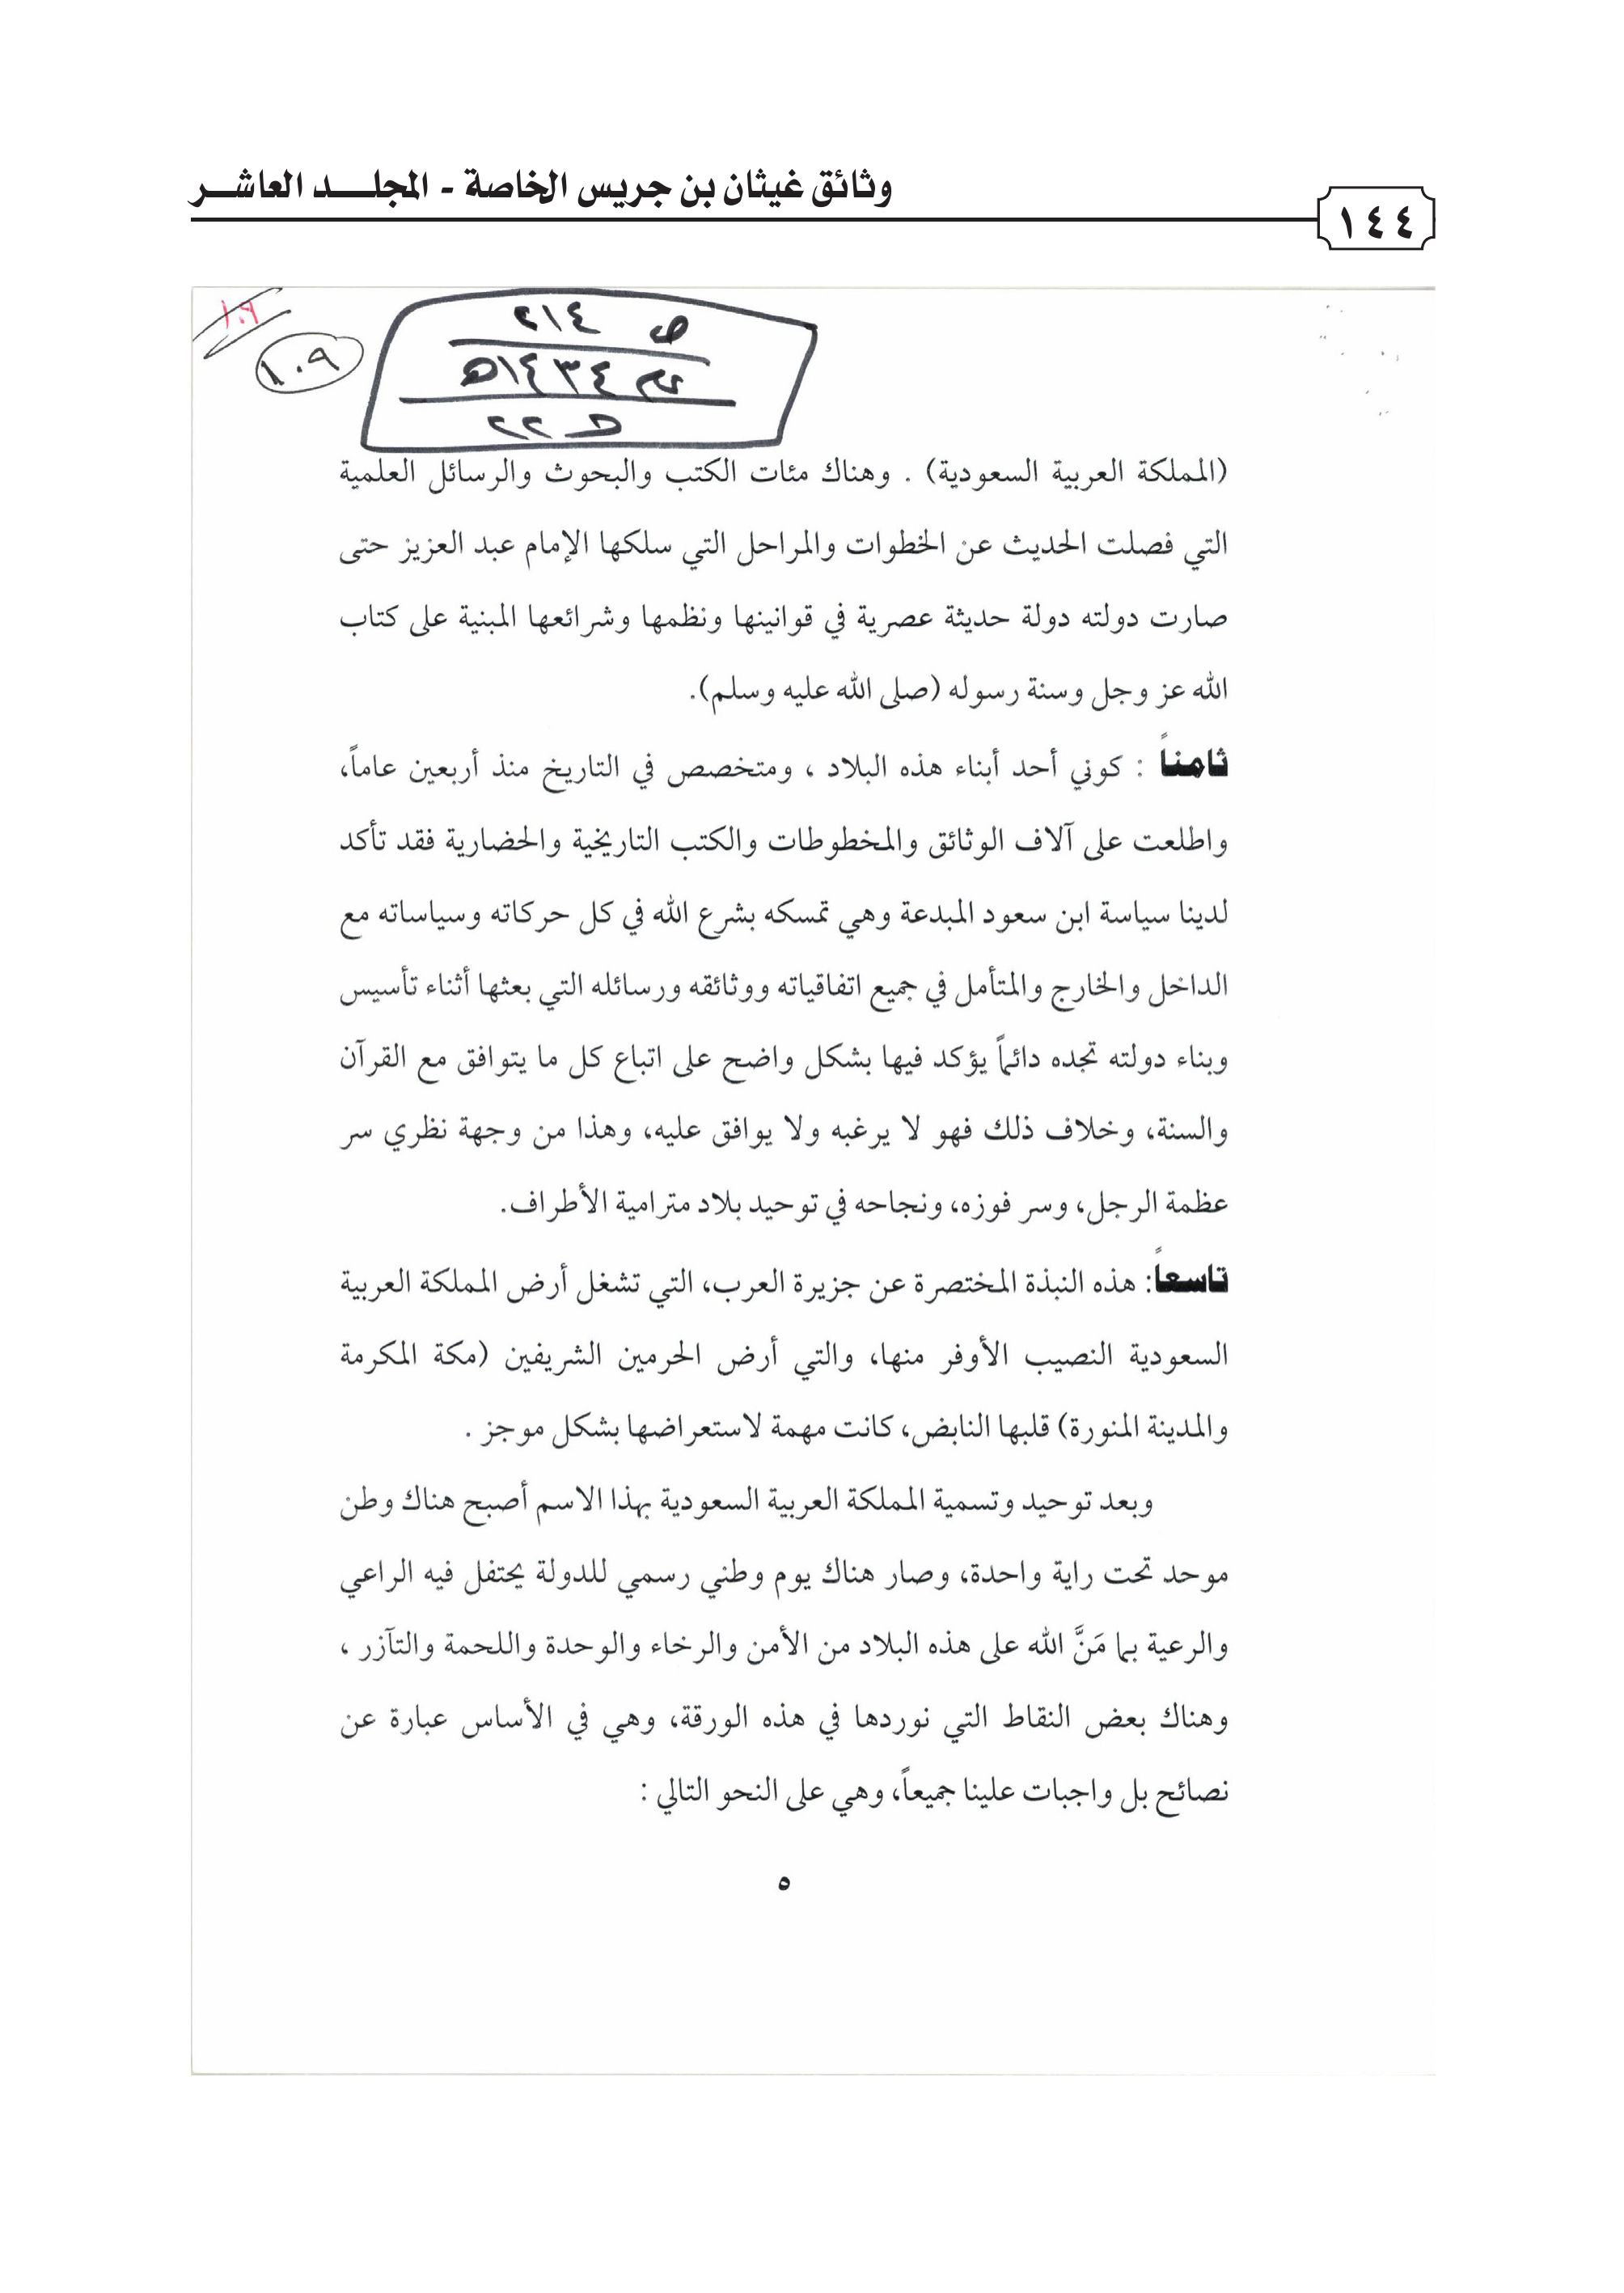 وثائق غيثان بن جريس الخاصة - المجلـــد العاشـــر
١٤٤
١٠٩
١٠٩
ص ٢١٤
١٤٣٤هـ
٢٢
(المملكة العربية السعودية) . وهناك مئات الكتب والبحوث والرسائل العلمية
التي فصلت الحديث عن الخطوات والمراحل التي سلكها الإمام عبد العزيز حتى
صارت دولته دولة حديثة عصرية في قوانينها ونظمها وشرائعها المبنية على كتاب
الله عز وجل وسنة رسوله (صلى الله عليه وسلم).
ثامناً : كوني أحد أبناء هذه البلاد ، ومتخصص في التاريخ منذ أربعين عاماً،
واطلعت على آلاف الوثائق والمخطوطات والكتب التاريخية والحضارية فقد تأكد
لدينا سياسة ابن سعود المبدعة وهي تمسكه بشرع الله في كل حركاته وسياساته مع
الداخل والخارج والمتأمل في جميع اتفاقياته ووثائقه ورسائله التي بعثها أثناء تأسيس
وبناء دولته تجده دائماً يؤكد فيها بشكل واضح على اتباع كل ما يتوافق مع القرآن
والسنة، وخلاف ذلك فهو لا يرغبه ولا يوافق عليه، وهذا من وجهة نظري سر
عظمة الرجل، وسر فوزه، ونجاحه في توحيد بلاد مترامية الأطراف.
تاسعاً: هذه النبذة المختصرة عن جزيرة العرب، التي تشغل أرض المملكة العربية
السعودية النصيب الأوفر منها، والتي أرض الحرمين الشريفين (مكة المكرمة
والمدينة المنورة) قلبها النابض، كانت مهمة لاستعراضها بشكل موجز .
وبعد توحيد وتسمية المملكة العربية السعودية بهذا الاسم أصبح هناك وطن
موحد تحت راية واحدة، وصار هناك يوم وطني رسمي للدولة يحتفل فيه الراعي
والرعية بما مَنَّ الله على هذه البلاد من الأمن والرخاء والوحدة واللحمة والتآزر ،
وهناك بعض النقاط التي نوردها في هذه الورقة، وهي في الأساس عبارة عن
نصائح بل واجبات علينا جميعاً، وهي على النحو التالي :
٥